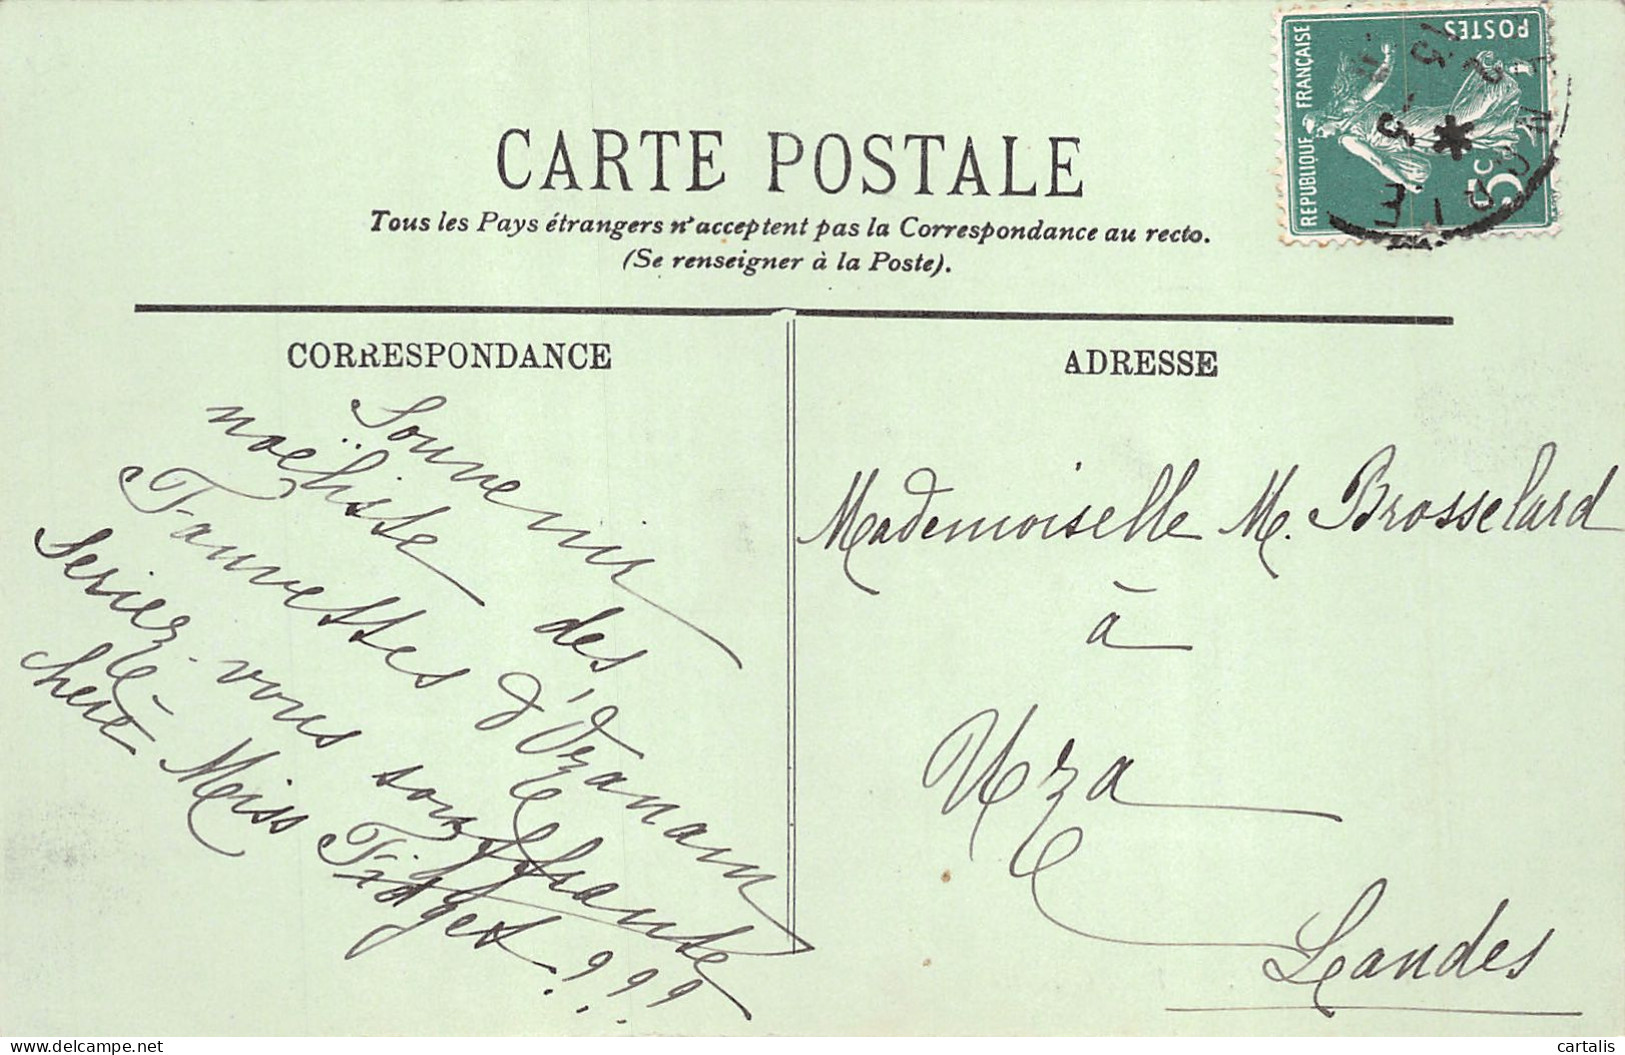 CARTE POSTALE
Tous les Pays étrangers n'acceptent pas la Correspondance au recto.
(Se renseigner à la Poste).
REPUBLIQUE FRANÇAISE
POSTES
5c
CORRESPONDANCE
Souvenir
noëliste des
Fauvettes d'Ozanam
Seriez-vous souffrante
chère Miss Fidget ???
ADRESSE
Mademoiselle M. Brosselard
à
Uza
Landes
cartalis